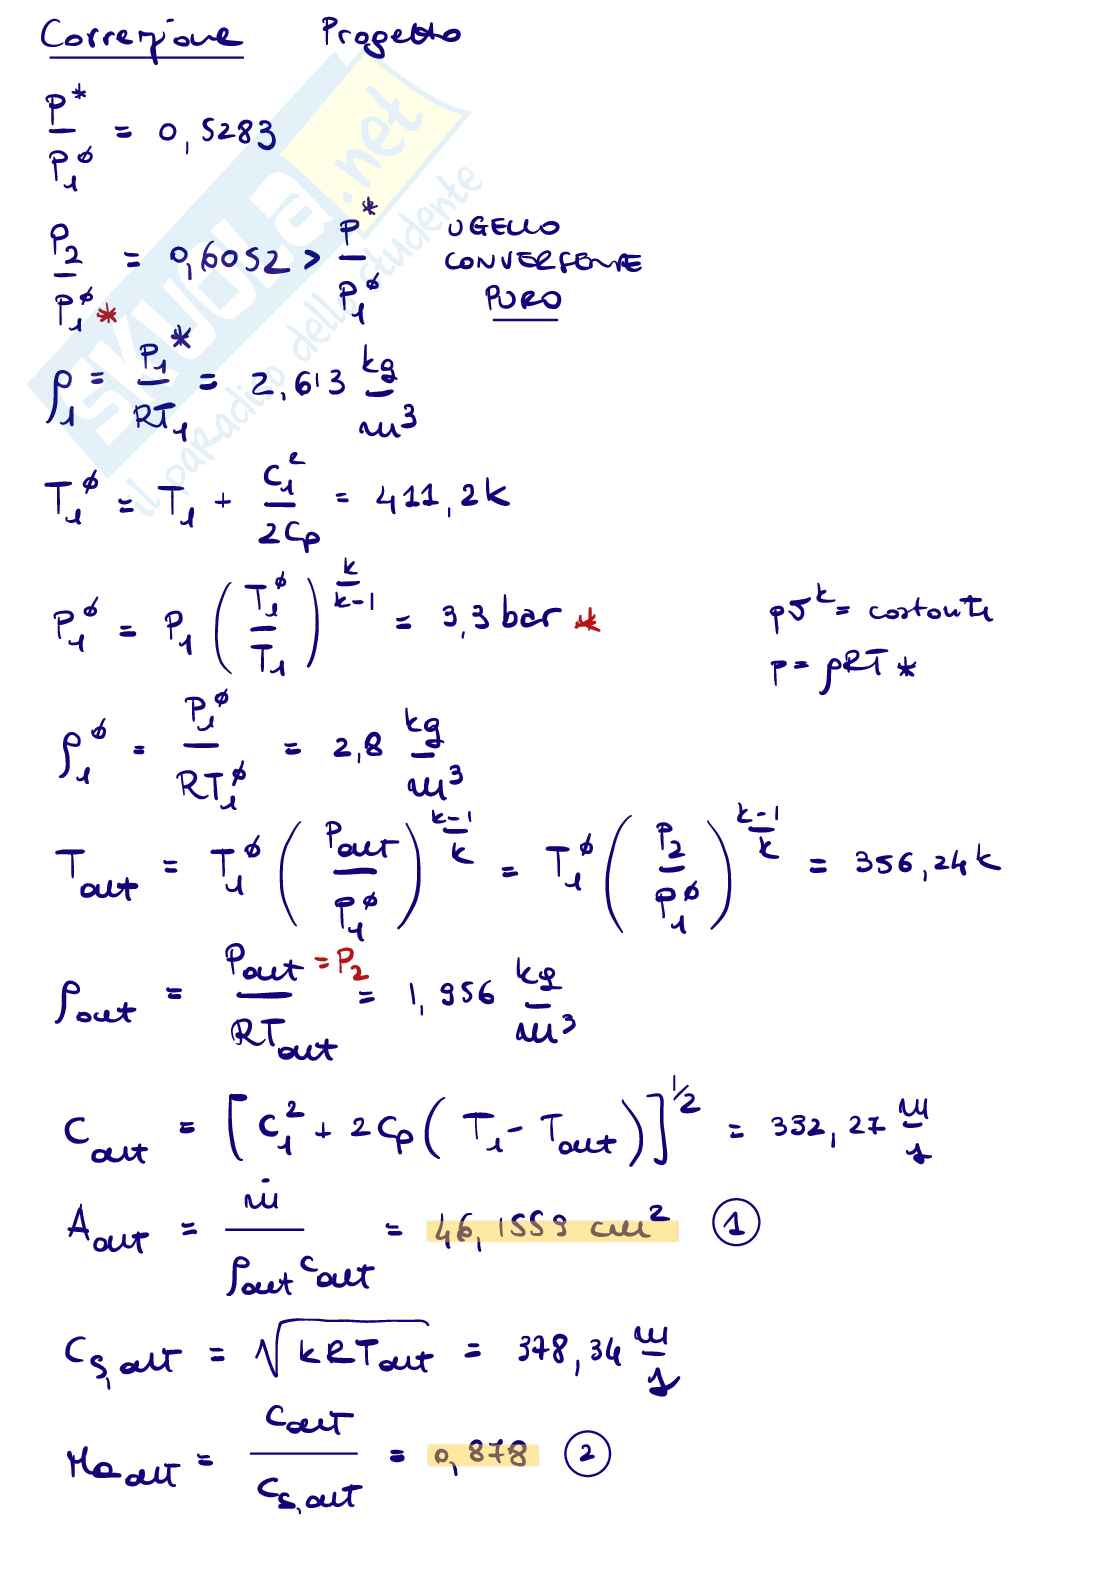 Correzione Progetto
P*/P₁^ø = 0,5283
P₂/P₁^ø * = 0,6052 > P*/P₁^ø UGELLO CONVERGENTE PURO
ρ₁ = P₁*/RT₁ = 2,613 kg/m³
T₁^ø = T₁ + C₁²/2Cp = 411,2k
P₁^ø = P₁ (T₁^ø/T₁)^(k/k-1) = 3,3 bar * pv^k = costante
p = ρRT *
ρ₁^ø = P₁^ø/RT₁^ø = 2,8 kg/m³
Tout = T₁^ø (Pout/P₁^ø)^(k-1/k) = T₁^ø (P₂/P₁^ø)^(k-1/k) = 356,24k
ρout = Pout = P₂/RTout = 1,956 kg/m³
Cout = [C₁² + 2Cp (T₁ - Tout)]^1/2 = 332,27 m/s
Aout = ṁ/ρout Cout = 46,1559 cm² 1
Cs,out = √kRTout = 378,34 m/s
Maout = Cout/Cs,out = 0,878 2
SKUOLA.net
il paradiso dello studente